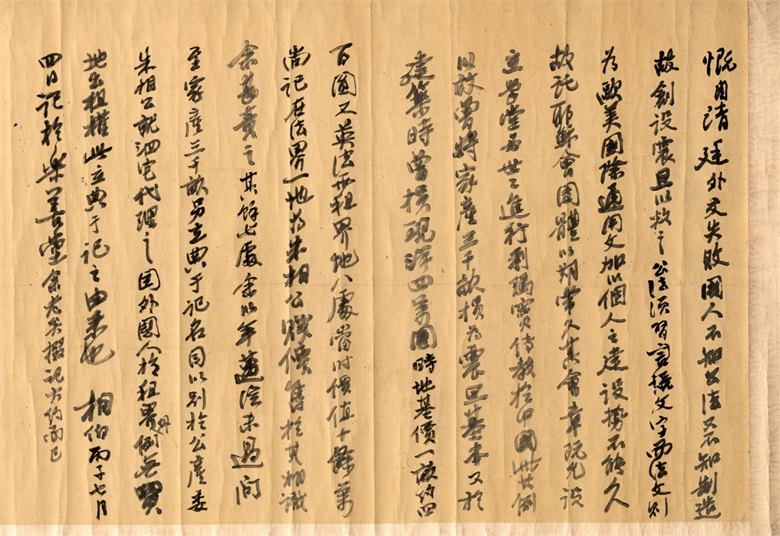 慨自清廷外交失敗國人不知公法又不知製造
故創設震旦以救之公法須習言語文字而法文則
為歐美國際通用文加以個人之建設勢不能久
故託耶穌會團體以期常久其會章既允設
立學堂而世世進行利瑪竇傳教於中國此其例
以故曾將家產三千畝捐為震旦基本又於
建築時曾捐現洋四萬圓時地基價一該約四
百圓又英法兩租界地八處當時價值十餘萬
尚記在法界一地為朱相公賤價售於其相識
余甚責之其餘七處余以年邁從未過問
至家產三千畝另立典于記名目以別於公產委
朱相公就泗宅代理之因外國人於租界外例無買
地出租權此立典于記之由來也 相伯丙子七月
四日記於樂善堂余老矣撮記大約而已